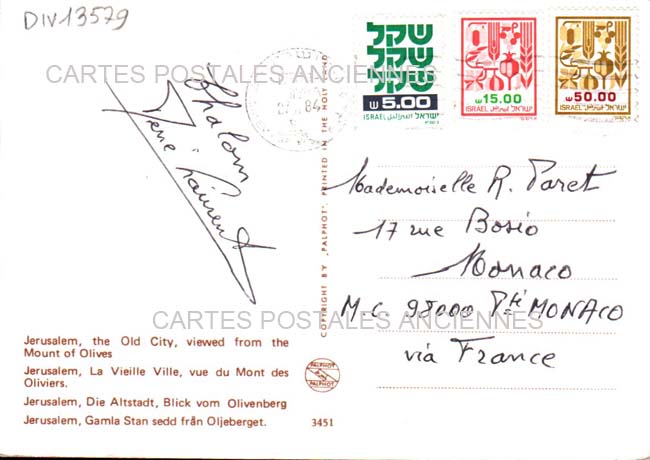 DIV13579
CARTES POSTALES ANCIENNES
שקל
שקל
שקל
5.00
ISRAEL اسرائيل ישראל
15.00
ISRAEL اسرائيل ישראל
50.00
ISRAEL اسرائيل ישראל
84
Shalom
Laurent
COPYRIGHT BY "PALPHOT", PRINTED IN THE HOLY LAND
Mademoiselle R. Paret
17 rue Bosio
Monaco
M.C 98000 Pté MONACO
via France
CARTES POSTALES ANCIENNES
Jerusalem, the Old City, viewed from the
Mount of Olives
Jerusalem, La Vieille Ville, vue du Mont des
Oliviers.
Jerusalem, Die Altstadt, Blick vom Olivenberg
Jerusalem, Gamla Stan sedd från Oljeberget.
PALPHOT
PALPHOT
3451